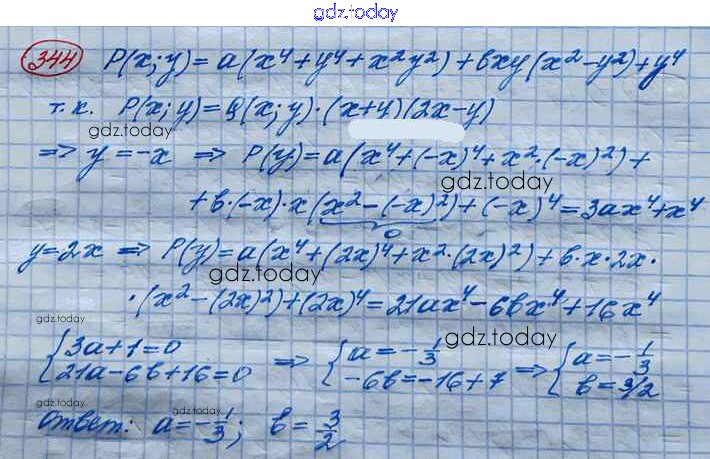 gdz.today
344 P(x;y)=a(x⁴+y⁴+x²y²)+bxy(x²-y²)+y⁴
т.к. P(x;y)=Q(x;y)·(x+y)(2x-y)
gdz.today
=> y=-x => P(y)=a(x⁴+(-x)⁴+x²·(-x)²)+
gdz.today
+b·(-x)·x(x²-(-x)²)+(-x)⁴=3ax⁴+x⁴
0
y=2x => P(y)=a(x⁴+(2x)⁴+x²·(2x)²)+b·x·2x·
gdz.today
·(x²-(2x)²)+(2x)⁴=21ax⁴-6bx⁴+16x⁴
gdz.today
gdz.today
{3a+1=0 => {a=-1/3 => {a=-1/3
21a-6b+16=0 -6b=-16+7 b=3/2
gdz.today
gdz.today
Ответ: a=-1/3; b=3/2